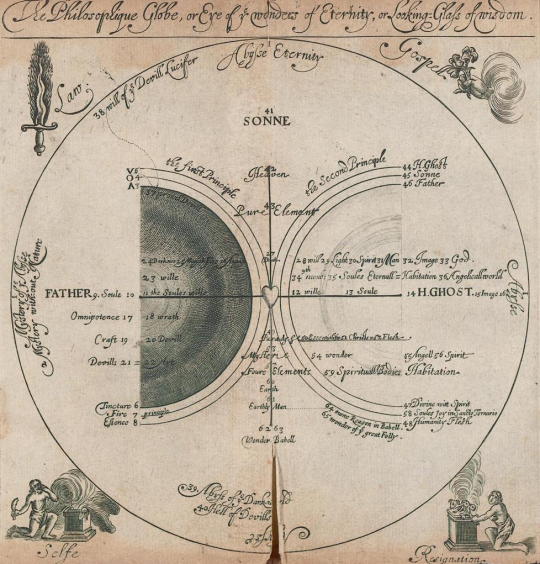 The Philosophique Globe, or Eye of yᵉ wonders of Eternity, or Looking-Glass of wisdom.
Abysse Eternity
Law
Gospell
38. will of yᵉ Devill Lucifer
41
SONNE
the first Principle
Heaven
the Second Principle
44 H.Ghost
45 Sonne
46 Father
V 5
O 4
A 3
43
Pure Element
27
24 Darknes 25
28 will 29 Light 30 Spirit 31 Man 32. Image 33 God.
23 wille
34 35 Soules Eternall Habitation 36 Angelicall world
FATHER 9. Soule 10 11 the Soules wille
12 wille 13 Soule 14 H.GHOST. 15 Image 16
Abysse
2 Mystery without Nature
Omnipotence 17 18 wrath
Craft 19 20 Devill
Paradise
Flesh
Devills 21 22 Art
Mysterie
54 wonder
55 Angell 56 Spirit
Foure Elements
59 Spirituall Bodies
Habitation
60
Earth
61
Earthly Man
Tincture 6
Fire 7 principle
Essence 8
57 Divine
58 Soules Joy in
48 Humanity Flesh
64 owne Reason in Babell
65 wonder of yᵉ great Folly.
62 63
Wonder Babell
39. Abysse of yᵉ
40 Hell of Devills
Selfe
Resignation